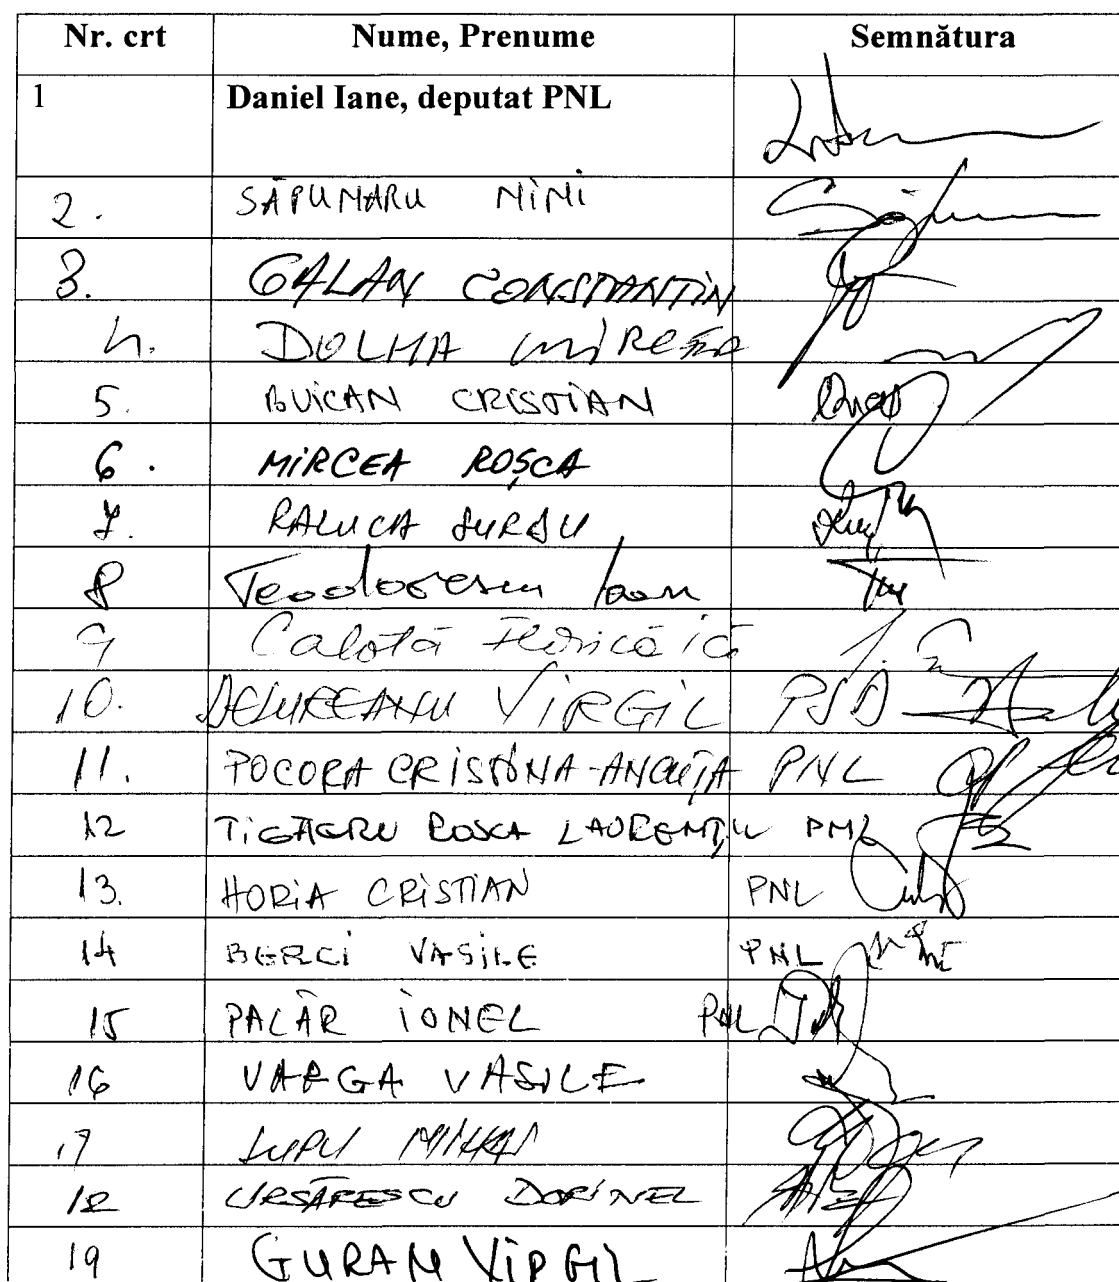 Nr. crt Nume, Prenume Semnătura
1 Daniel Iane, deputat PNL
2. SĂPUNARU NINI
3. GALAN CONSTANTIN
4. DOLHA
5. BUICAN CRISTIAN
6. MIRCEA ROȘCA
7. RALUCA SURDU
8 Teodorescu Ioan
9 Calotă Florică
10. DELUREANU VIRGIL PSD
11. POCORA CRISTINA-ANCUȚA PNL
12 ROSCA LAURENȚIU PNL
13. HORIA CRISTIAN PNL
14 BERCI VASILE PNL
15 PALĂR IONEL PNL
16 VARGA VASILE
17 LUPU MIHAI
18 URSĂRESCU DORINEL
19 GURAN VIRGIL